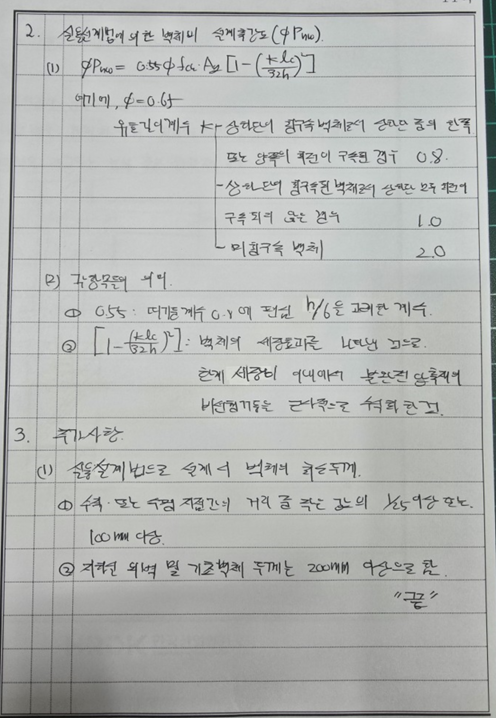 2. 실용설계법에 의한 벽체의 설계축강도(φPnw).
(1) φPnw = 0.55φfck·Ag[1-(klc/32h)²]
여기에, φ=0.65
유효길이계수 k - 상하단이 횡구속벽체로서 상하단 중의 한쪽
또는 양쪽의 회전이 구속된 경우 0.8
- 상하단이 횡구속된 벽체로서 상하단 모두 회전이
구속되지 않은 경우 1.0
- 비횡구속 벽체 2.0
(2) 각항목들의 의미.
① 0.55 : 띠기둥계수 0.8에 편심 h/6을 고려한 계수.
② [1-(klc/32h)²] : 벽체의 세장효과를 나타낸 것으로.
한계 세장비 이내에서 불완전 양축재의
근사적으로 수식화 한 것.
3. 추가사항.
(1) 실용설계법으로 설계시 벽체의 최소두께.
① 수직 또는 수평 지점간의 거리 중 작은 값의 1/25이상 또는.
100mm 이상.
② 지하실 외벽 및 기초벽체 두께는 200mm 이상으로 함.
"끝"